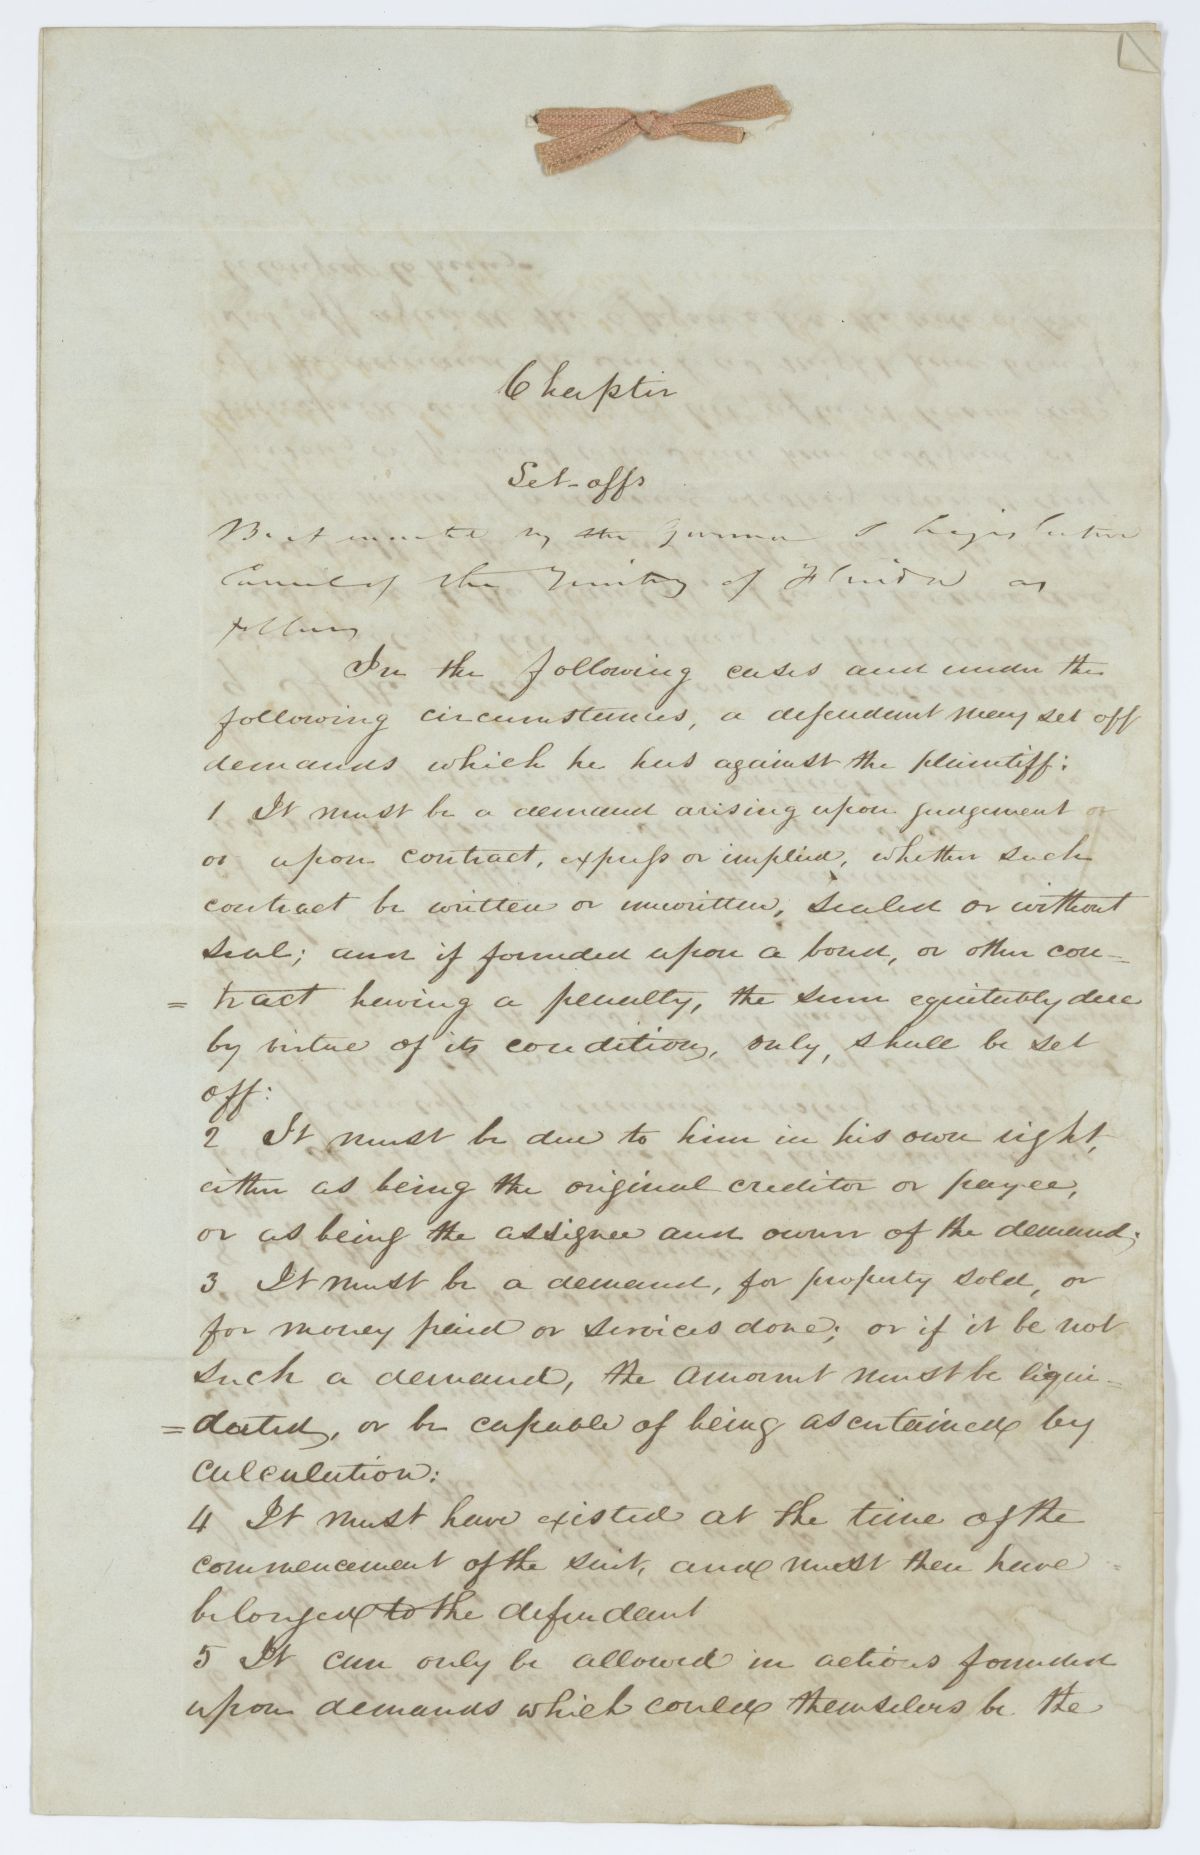 Chapter
Set-offs
Be it enacted by the Governor & Legislative
Council of the Territory of Florida as
follows
In the following cases and under the
following circumstances, a defendant may set off
demands which he has against the plaintiff:
1 It must be a demand arising upon judgement or
or upon contract, express or implied, whether such
contract be written or unwritten, sealed or without
seal; and if founded upon a bond, or other con-
= tract having a penalty, the sum equitably due
by virtue of its condition, only, shall be set
off:
2 It must be due to him in his own right,
either as being the original creditor or payee,
or as being the assignee and owner of the demand;
3 It must be a demand, for property sold, or
for money paid or services done; or if it be not
such a demand, the amount must be liqui-
= dated, or be capable of being ascertained by
calculation:
4 It must have existed at the time of the
commencement of the suit, and must then have
belonged to the defendant
5 It can only be allowed in actions founded
upon demands which could themselves be the